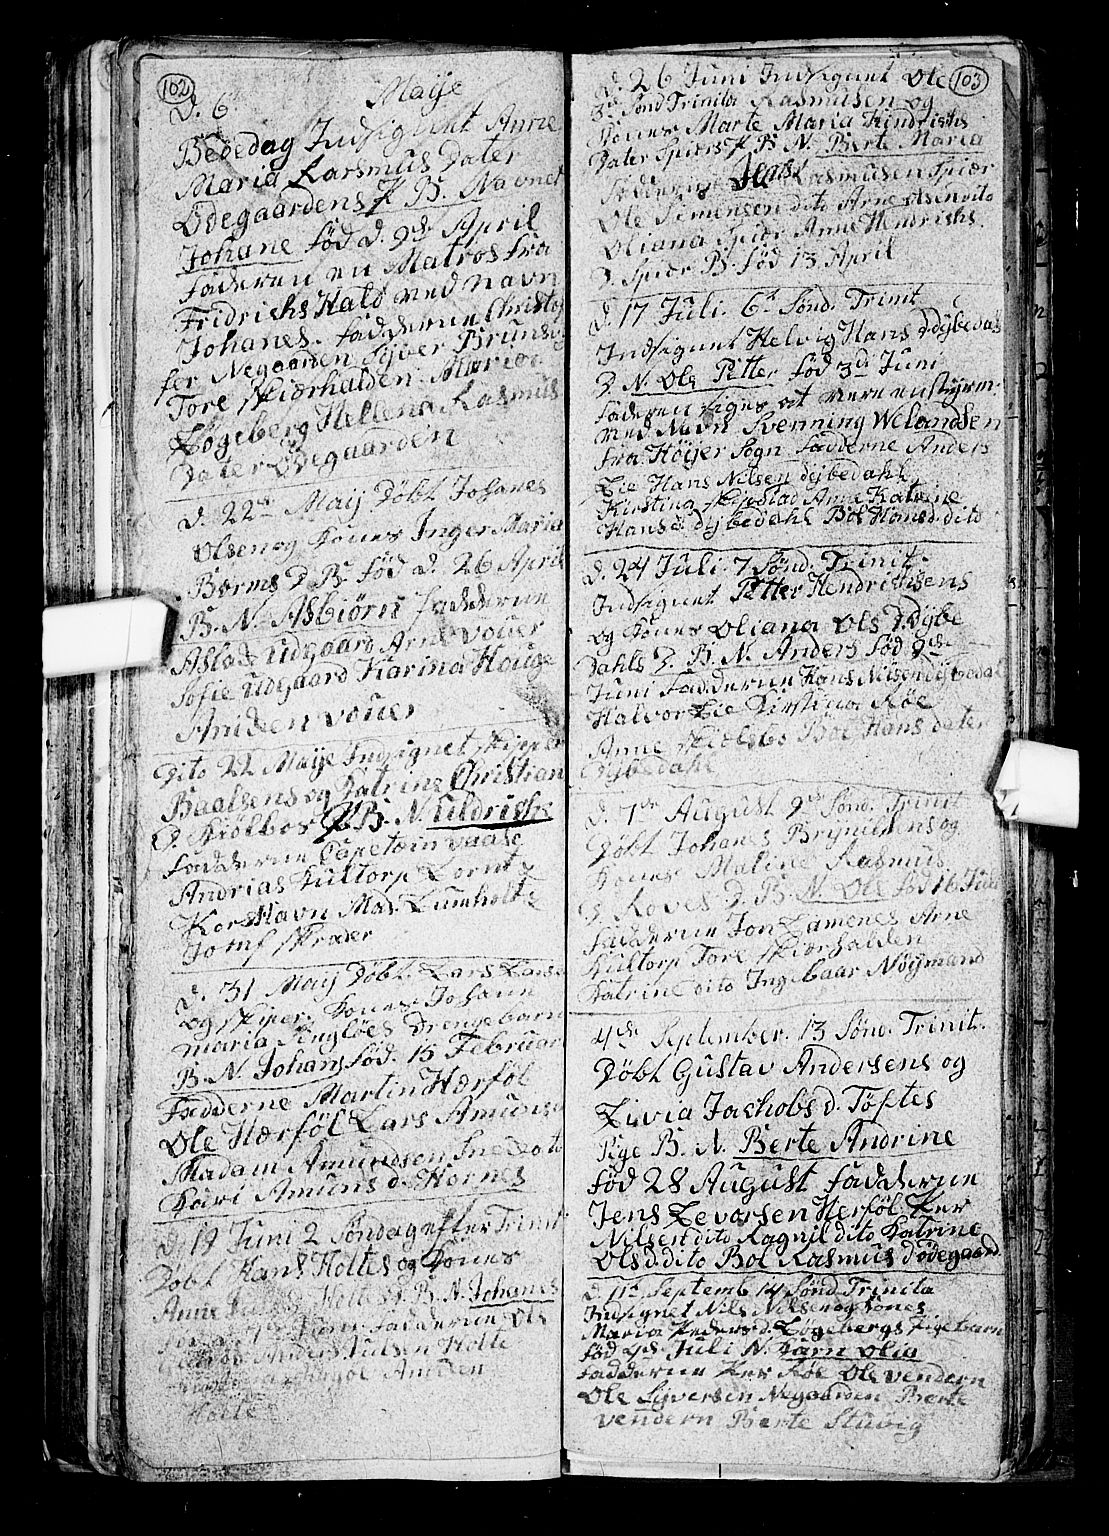 102
Maije
d. 6
Bededag Indsignet Anne
Maria Larsmus Dater
Ødegaardens P B. Navnet
Johane född d. 9de April
faderen en Matros fra
Fridrichs Hald med navn
Johanes. fadderne Christo
fer Negaarden Syver Brunsv
Tore Kiørhalden. Maria
Løgeberg Hellena Rasmus
Dater Ødegaarden
d. 22de Maij Døbt Johanes
Olsen og Kones Inger Maria
Børms D. B. fød d. 26 April
B. N. Asbiørn fadderne
Aslad Udgaard Arne Vouer
Sofie Udgaard Karina Houge
Amden Vouer
Dito 22 Maije Indsignet Skipper
Baalsens og Katrine Christian
D. Kiølbos P B. N. Uldriche
fadderne Capetein Vaale
Andrias Kultorp Lornt
Kors Havn Mad. Lumholt
Josef Skrader
d. 31 Maij Døbt. Lars Larsen
og Skiper. Kones Johan
Maria Singløes Drengebarn
B. N. Johan fød. 15 Februar
Fadderne Martin Hærføl
Ole Hærføl Lars Amunsen
Madam Amundsen Snedoto
Kari Amuns d. Hornes
d. 19 Juni 2 Søndag efter Trinit
Døbt Hans Holtes og Kones
Anne Holte B. N. Johanes
fadderne Ole
Anders Julsen Holte
Amden
Holte
103
d. 26 Juni Indsignet Ole
3de Sønd Trinita Rasmusen og
Kones Marte Maria Hindrichs
Dater Spiørs P B N. Berte Maria
Fadderne Hans Rasmusen Spiør
Ole Simensen dito Arne Olsen dito
Oliana Spiør Anne Hendrichs
D. Spiør B. fød 13 April
d. 17 Juli. 6te Sønd. Trinit
Indsignet Helvig Hans D dybedals
D N. Ole Petter fød 3de Juni
faderen siges at være en styrm.
med Navn Svenning Welandsen
fra Høijer Sogn fadderne Anders
Lie Hans Nilsen dybedahl
Kirstina Skipstad Anne Katrine
Hans d Dybedahl Bol Hans d. dito
d. 24 Juli. 7 Sønd. Trinit.
Indsignet Petter Hendrichsens
og Kones Oliana Ols D Dybe
Dahls D. B. N. Anders fød 9de
Juni Fadderne Hans Nilsen dybedal
Halvor Lie Kirstina Røe
Anne Kiølbos Bol Hans dater
Dybedahl
d. 7de August 9de Sønd. Trini
Døbt Johanes Brynilsens og
Kones Maline Rasmus
D. Roves D. B. N. Ole fød 16 Juli
fadderne Jon Lamenes Arne
Kultorp Tore Skiørhalden
Katrine dito Ingebaar Nøijmand
4de September. 13 Sønd. Trinit.
Døbt Gustav Andersens og
Livia Jachobs d. Tøftes
Pige B. N. Berte Andrine
fød 28 August fadderne
Jens Levorsen Herføl Per
Nilsen dito Ragnil dito Katrine
Ols d. dito Bol Rasmus d Ødegaard
d. 11te Septemb 14 Sønd Trinita
Indsignet Nils Nilsen og Kones
Maria Peders d. Løgebergs Pigebarn
fød 9de Juli N. Karn Olia
fadderne Per Røe Ole Vendern
Ole Syversen Negaarden Berte
Vendern Berte Stuvig